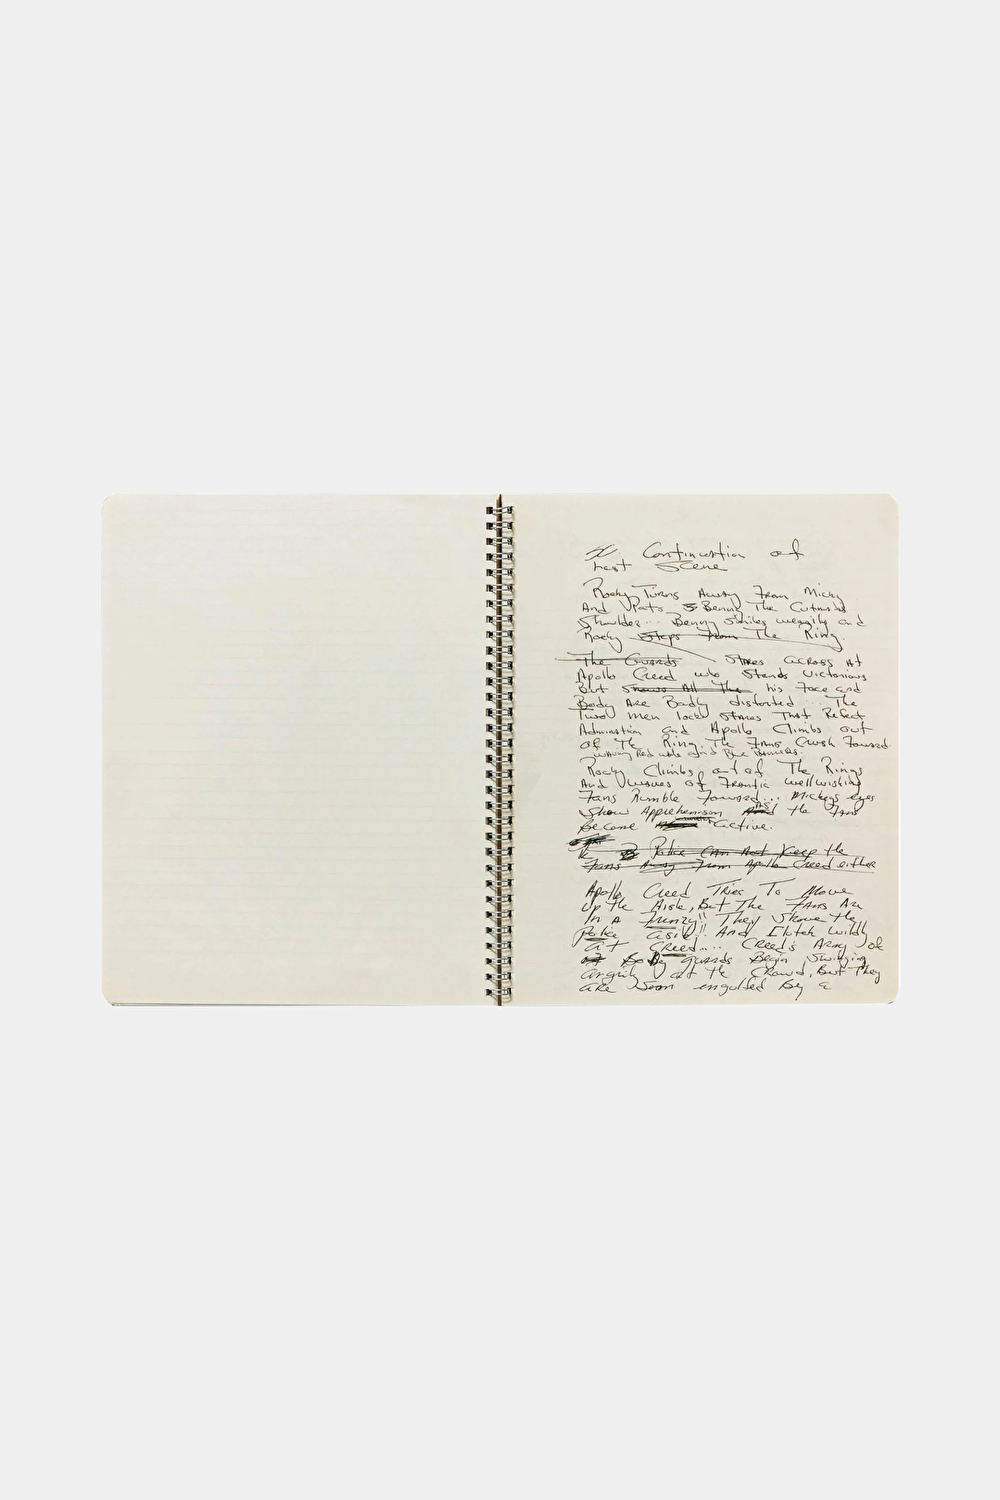 Continuation of
Last Scene
Rocky Turns Away From Micky
And Pats Benny The Cutmans
Shoulder... Benny Smiles wearily and
Rocky Steps From The Ring.
The Guards Stares across At
Apollo Creed who Stands Victorious
But Shows All The his Face and
Body Are Badly distorted... The
Two Men lock Stares That Reflect
Admiration and Apollo Climbs out
of The Ring. The Fans Crush Foward
waving Red white and Blue Banners.
Rocky Climbs out of The Rings
And Waves of Frantic wellwishing
Fans Rumble Foward... Mickeys eyes
Show Apprehenison As the Fans
Become active.
Police Can Not Keep the
Fans Away From Apollo Creed either
Apollo Creed Tries To Move
Up the Aisle, But The Fans Are
In A Frenzy!! They Shove the
Police aside!! And Clutch Wildly
at Creed.... Creed's Army of
Body guards Begin Swinging
angrily at the Crowd, But They
are Soon engulfed By a